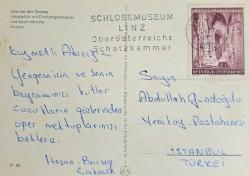 Linz an der Donau
Hauptplatz mit Dreifaltigkeitssäule
Austria
SCHLOSSMUSEUM
LINZ
Oberösterreichs
Schatzkammer
REPUBLIK ÖSTERREICH
Kıymetli Abiciğim
Yengemizin ve senin
bayramınızı kutlar
çocukların gözlerinden
öper mektuplarınızı
bekleriz.
Hasan
Sayın
Abdullah Gündoğdu
Yeniköy Postahanesi
İSTANBUL
TÜRKEI